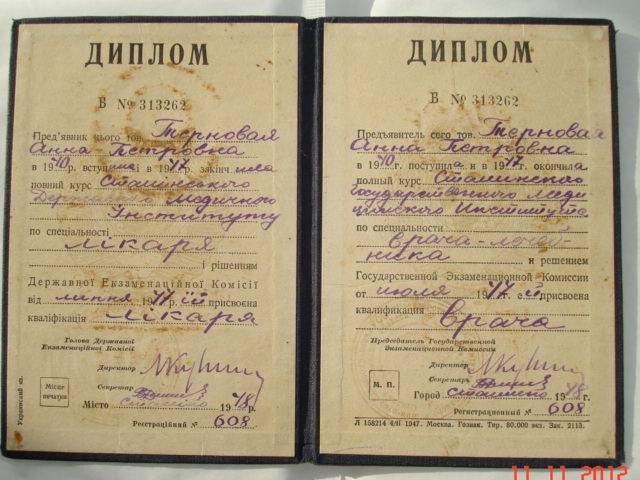 ДИПЛОМ
Б № 313262
Пред'явник цього тов. Терновая
Анна Петровна
в 1940 р. вступила і в 1947 закінчила
повний курс Сталінського
Державного Медичного
Інституту
по спеціальності
лікаря
і рішенням
Державної Екзаменаційної Комісії
від липня 1947 р. їй присвоєна
кваліфікація лікаря
Голова Державної
Екзаменаційної Комісії
Директор
Секретар
Місце
печатки
Місто Сталіно 1948 р.
Реєстраційний № 608
Украинский яз.
ДИПЛОМ
Б № 313262
Предъявитель сего тов. Терновая
Анна Петровна
в 1940 г. поступила и в 1947 г. окончила
полный курс Сталинского
Государственного Меди
цинского Института
по специальности
врача-лечеб-
ника и решением
Государственной Экзаменационной Комиссии
от июля 1947 г. ей присвоена
квалификация
врача
Председатель Государственной
Экзаменационной Комиссии
Директор
Секретарь
М. П.
Город Сталино 1948 г.
Регистрационный № 608
Л 158214 4/II 1947. Москва. Гознак. Тир. 80.000 экз. Зак. 2113.
11 11 2012